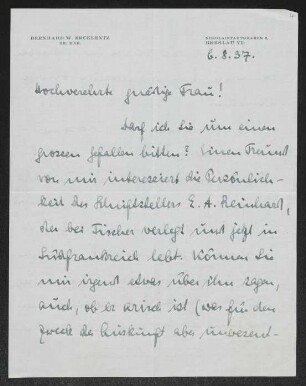 EBERHARD-W. BRÜLENTZ
DR. PHIL.
BRESLAU VI,
6.8.37.
Hochverehrte gnädige Frau!
Darf ich Sie um einen
grossen Gefallen bitten? Einen Freund
von mir interessiert die Persönlich-
keit des Schriftstellers E. A. Reinhardt,
der bei Fischer verlegt und jetzt in
Südfrankreich lebt. Können Sie
mir irgend etwas über ihn sagen,
auch, ob er arisch ist (was für den
Zweck der Auskunft aber unwesent-